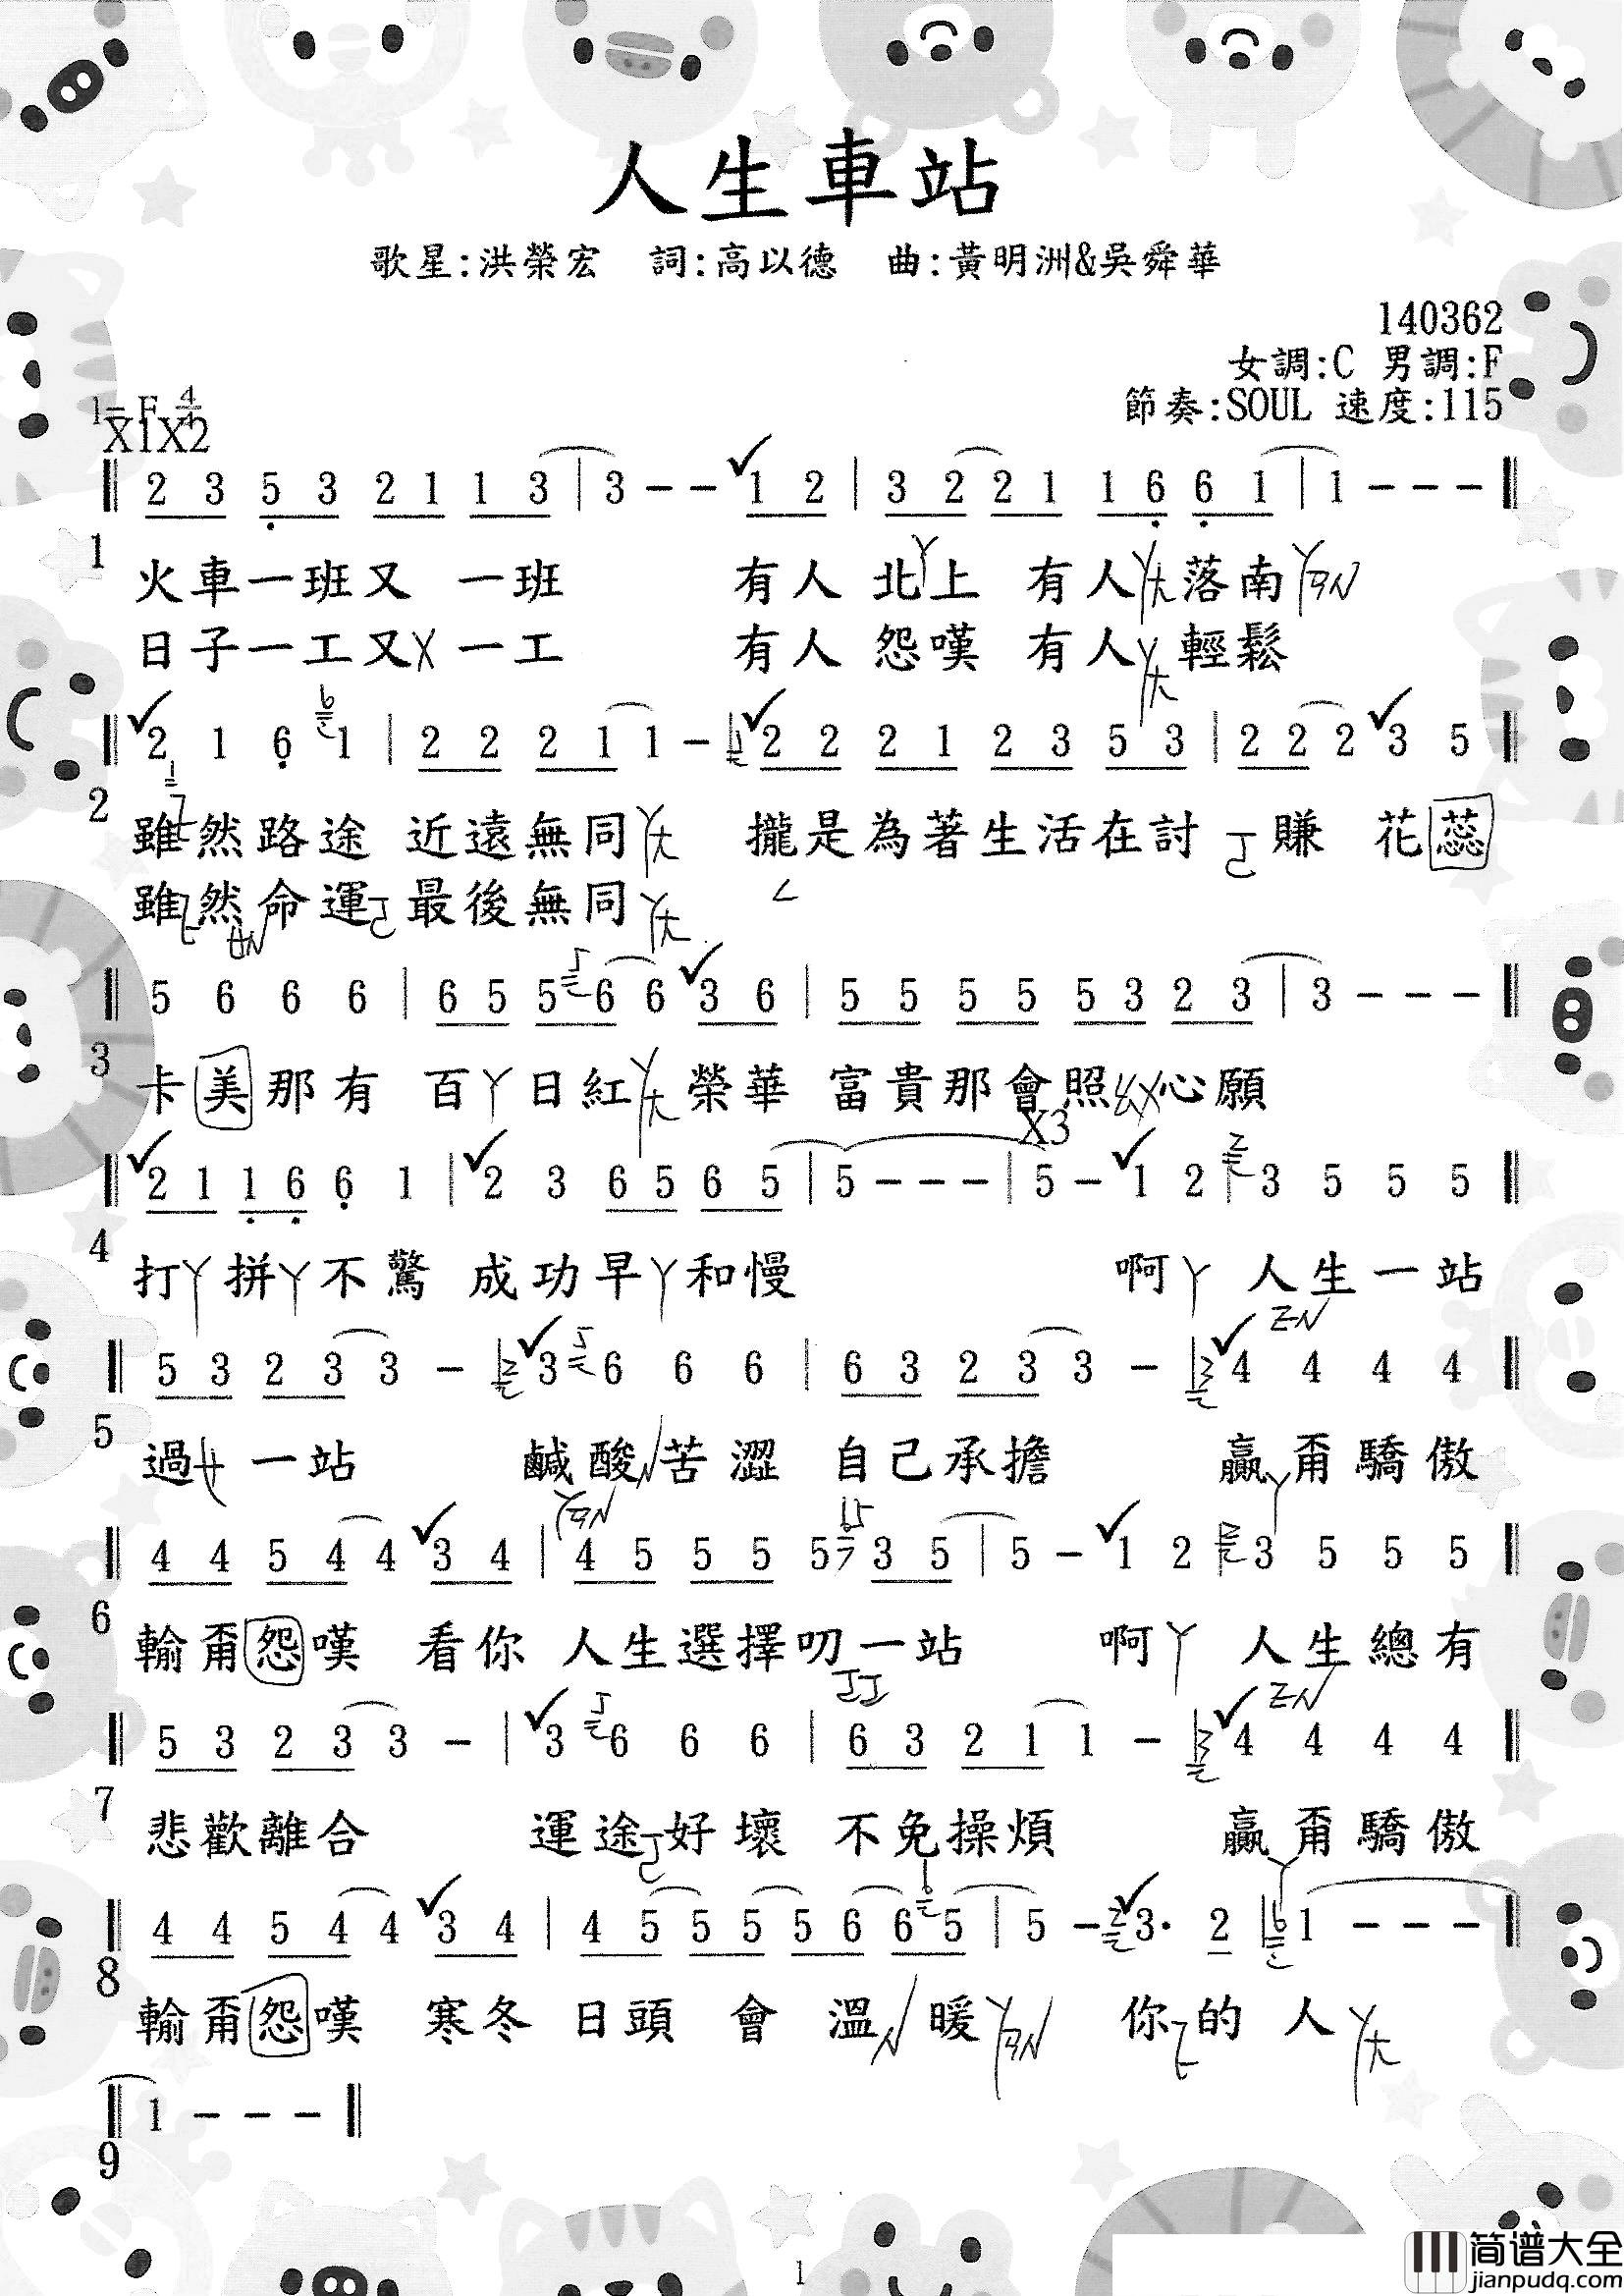 人生車站
歌星:洪榮宏 詞:高以德 曲:黃明洲&吳舜華
140362
女調:C 男調:F
節奏:SOUL 速度:115
1=F 4/4
X1X2
2 3 5 3 2 1 1 3 | 3 - - 1 2 | 3 2 2 1 1 6 6 1 | 1 - - -
1
火車一班又 一班 有人 北上 有人 落南
日子一工又 一工 有人 怨嘆 有人 輕鬆
2 1 6 1 | 2 2 2 1 1 - 2 2 2 1 2 3 5 3 | 2 2 2 3 5
2
雖然路途 近遠無同 攏是為著生活在討 賺 花蕊
雖然命運 最後無同
5 6 6 6 | 6 5 5 6 6 3 6 | 5 5 5 5 5 3 2 3 | 3 - - -
3
卡美那有 百 日紅 榮華 富貴那會照 心願
X3
2 1 1 6 6 1 | 2 3 6 5 6 5 | 5 - - - | 5 - 1 2 | 3 5 5 5
4
打 拼 不驚 成功早 和慢 啊 人生一站
5 3 2 3 3 - | 3 6 6 6 | 6 3 2 3 3 - | 4 4 4 4
5
過 一站 鹹酸 苦澀 自己承擔 贏甭驕傲
4 4 5 4 4 3 4 | 4 5 5 5 5 3 5 | 5 - 1 2 3 5 5 5
6
輸甭怨嘆 看你 人生選擇叨一站 啊 人生總有
5 3 2 3 3 - | 3 6 6 6 | 6 3 2 1 1 - 4 4 4 4
7
悲歡離合 運途 好壞 不免操煩 贏甭驕傲
4 4 5 4 4 3 4 | 4 5 5 5 5 6 6 5 | 5 - 3· 2 1 - - -
8
輸甭怨嘆 寒冬 日頭 會 溫 暖 你 的 人
1 - - -
9
1
简谱大全
jianpudq.com